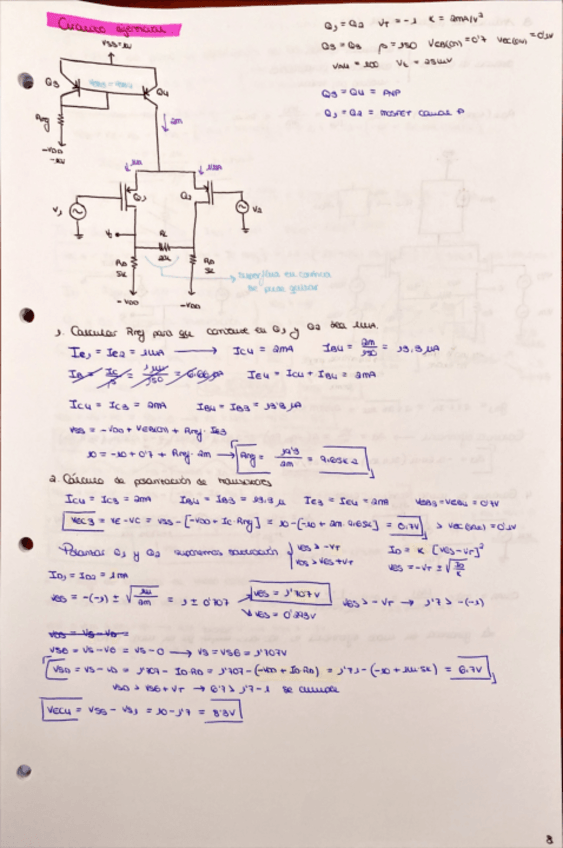 Cuarto ejercicio
VSS=10
Q1 = Q2 VT = -1 K = 2mA/V²
Q3 = Q4 β = 150 VEB(ON) = 0'7 VEC(SAT) = 0'2V
Q3 = Q4 = PNP
Q1 = Q2 = MOSFET canal P
Q3
Q4
Rref
-VDD
-10
2m
1mA
1mA
V1
Q1
Q2
V2
RD
5k
RL
RD
5k
-VDD
-VDD
superflua en continua
se puede quitar
1. Calcular Rref para que corriente en Q1 y Q2 sea 1mA.
Ie1 = Ie2 = 1mA → IC4 = 2mA IB4 = 2m/150 = 13.3 µA
IB = IC/β = 1m/150 = 6.66 µA IE4 = IC4 + IB4 = 2mA
IC4 = IC3 = 2mA IB4 = IB3 = 13'3 µA
VSS = -VDD + VEB(ON) + Rref · IE3
10 = -10 + 0'7 + Rref · 2m → Rref = 19'3/2m = 9.65k Ω
2. Cálculo de polarización de transistores
IC4 = IC3 = 2mA IB4 = IB3 = 13.3 µ IE3 = IE4 = 2mA VEB3 = VEB4 = 0.7V
VEC3 = VE - VC = VSS - [-VDD + IC · Rref] = 10 - [-10 + 2m · 9.65k] = 0.7V > VEC(SAT) = 0'2V
Polarizar Q1 y Q2 suponemos saturación VSG > -VT ID = K [VSG - VT]²
VSD > VSG + VT VSG = -VT ± √ID/K
ID1 = ID2 = 1mA
VSG = -(-1) ± √1m/2m = 1 ± 0'707 VSG = 1'707V VSG > -VT → 1'7 > -(-1)
VSG = 0'293V
VSG = VS - VG = VS - 0 → VS = VSG = 1'707V
VSD = VS - VD = 1'707 - ID·RD = 1'707 - (-VDD + ID·RD) = 1'7 - (-10 + 1m·5k) = 6.7V
VSD > VSG + VT → 6'7 > 1'7 - 1 se cumple
VEC4 = VSS - VS1 = 10 - 1'7 = 8'3V
8